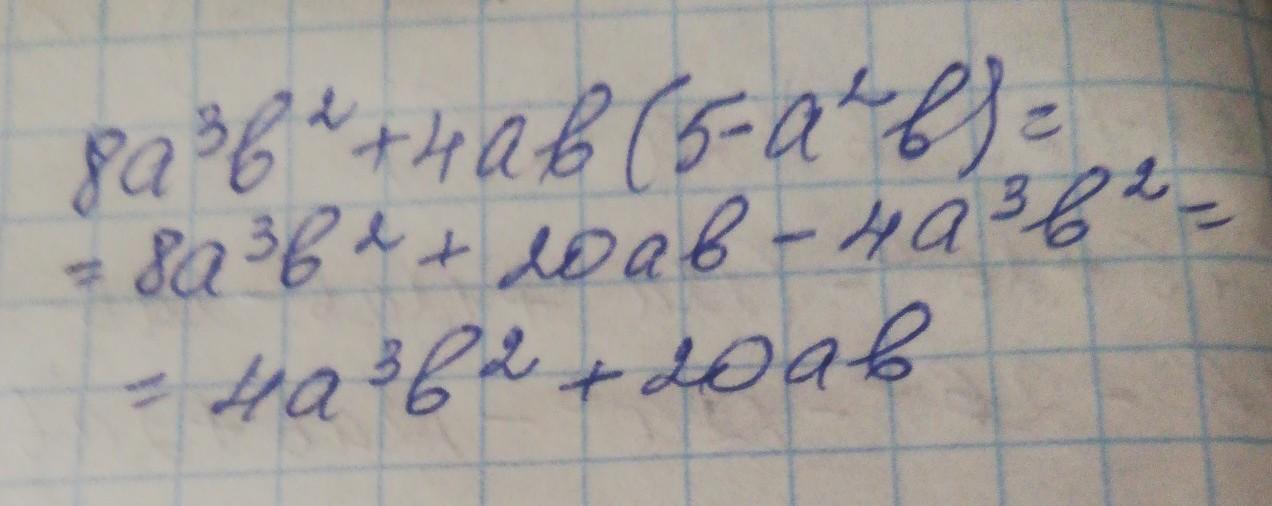 8a³b² + 4ab(5 - a²b) =
= 8a³b² + 20ab - 4a³b² =
= 4a³b² + 20ab